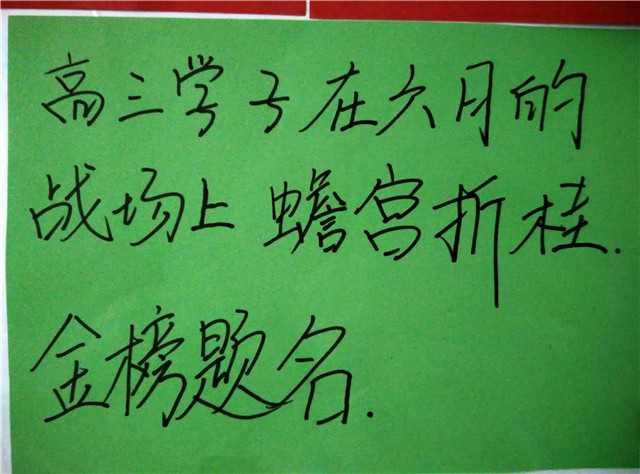 高三学子在六月的
战场上 蟾宫折桂.
金榜题名.